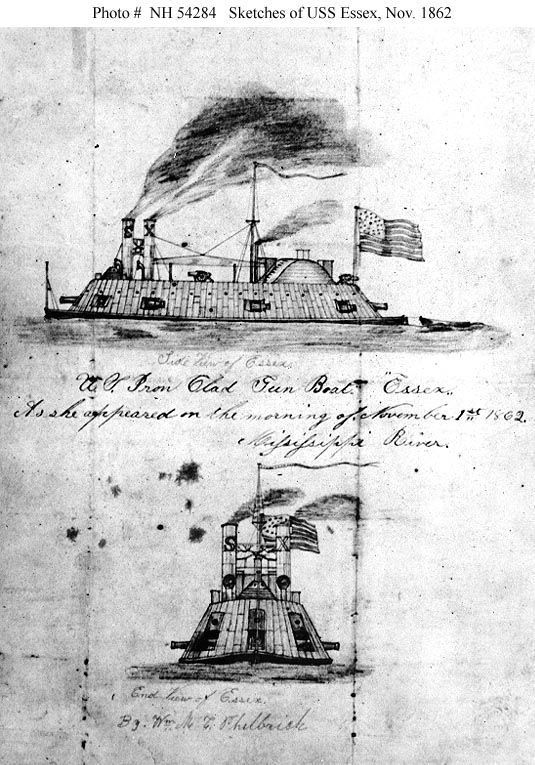 Photo # NH 54284 Sketches of USS Essex, Nov. 1862
Side View of Essex.
U.S. Iron Clad Gun Boat "Essex"
As she appeared on the morning of November 1st 1862.
Mississippi River.
End View of Essex.
By: Wm. M. C. Philbrick